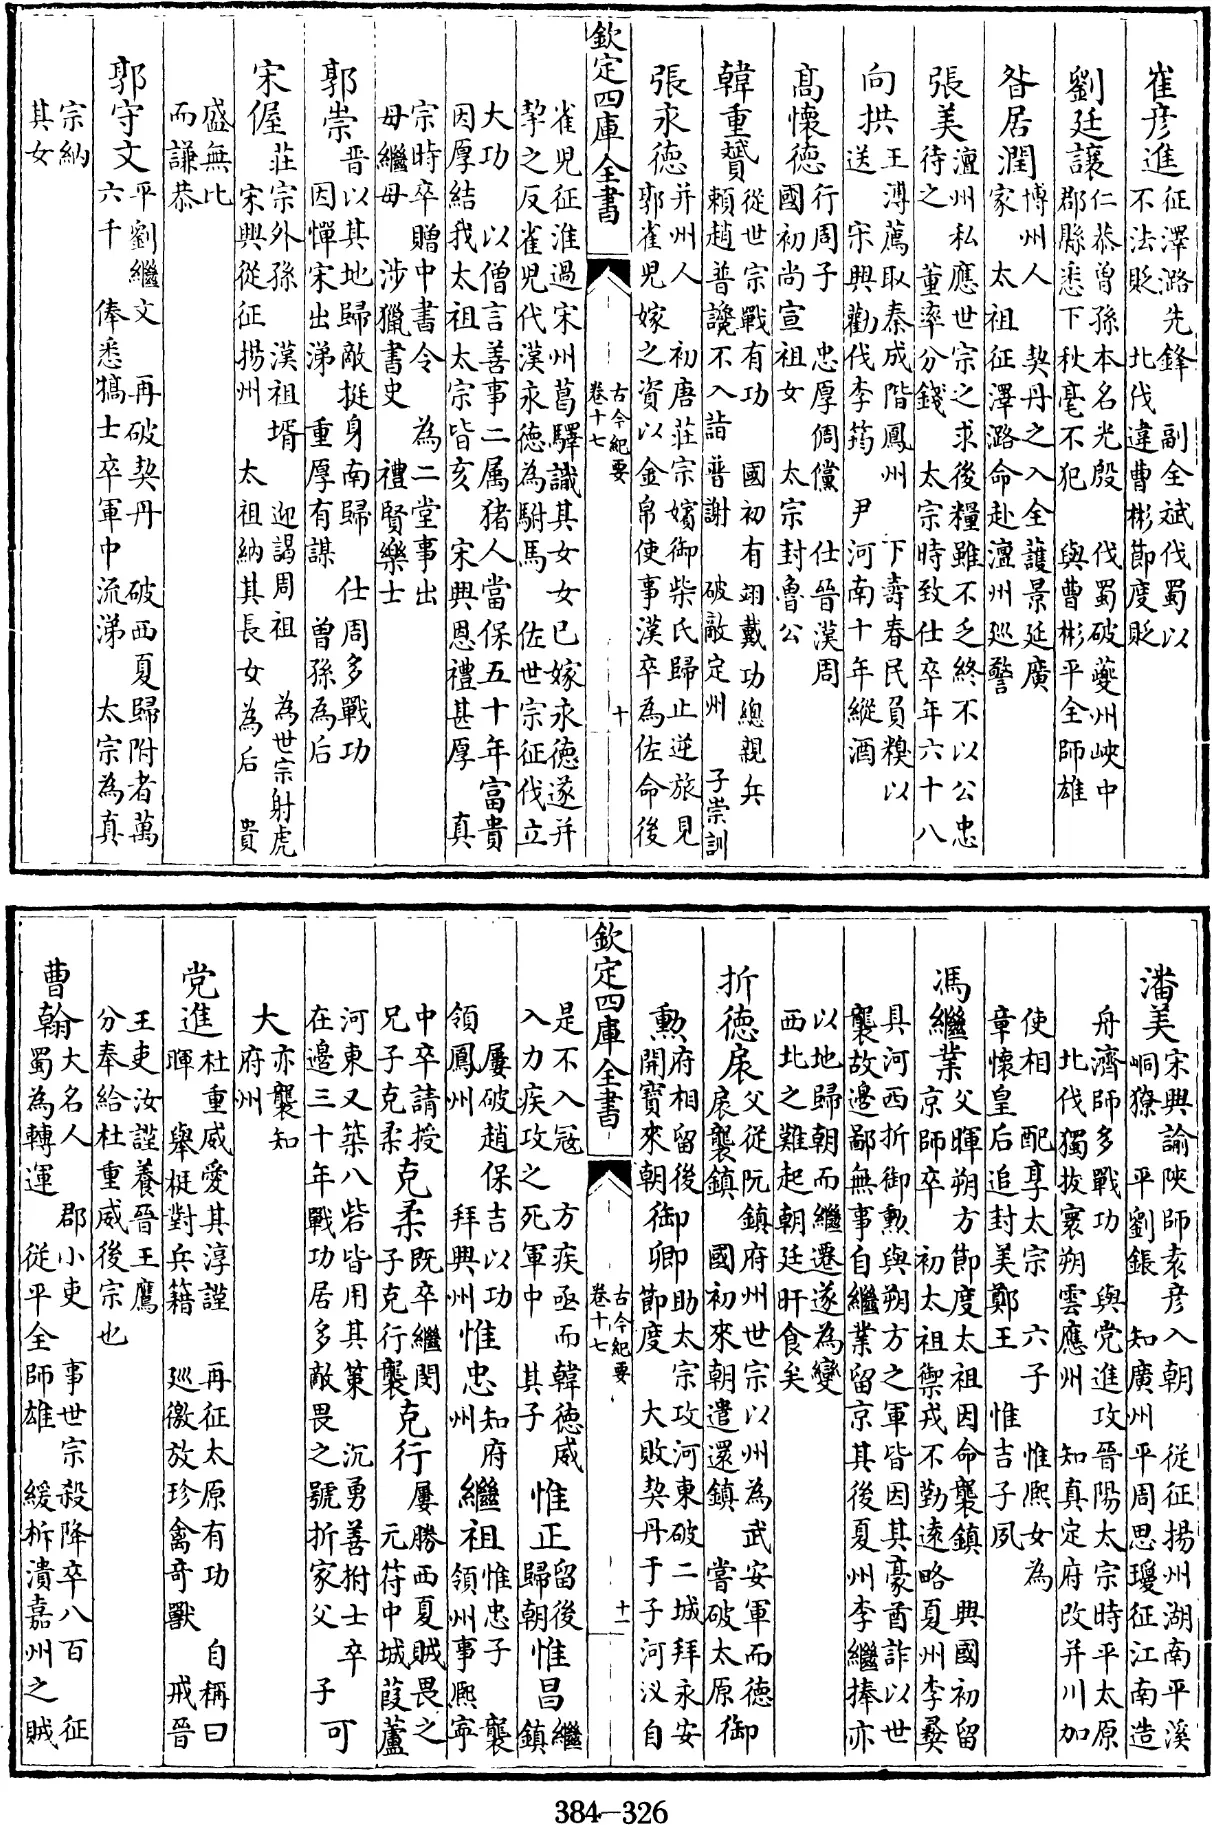 崔彦進征澤潞先鋒 副全斌伐蜀以
不法貶 北伐違曹彬節度貶
劉廷讓仁恭曾孫本名光殷 伐蜀破夔州峽中
郡縣悉下秋毫不犯 與曹彬平全師雄
昝居潤博州人 契丹之入全護景延廣
家 太祖征澤潞命赴澶州巡警
張美澶州私應世宗之求後糧雖不乏終不以公忠
待之 董率分錢 太宗時致仕卒年六十八
向拱王溥薦取秦成階鳳州 下壽春民員糗以
送 宋興勸伐李筠 尹河南十年縱酒
髙懷德行周子 忠厚倜儻 仕晉漢周
國初尚宣祖女 太宗封魯公
韓重贇從世宗戰有功 國初有翊戴功總親兵
賴趙普讒不入詣普謝 破敵定州 子崇訓
張永德并州人 初唐莊宗嬪御柴氏歸止逆旅見
郭雀兒嫁之資以金帛使事漢卒為佐命後
欽定四庫全書
古今紀要
卷十七
十
雀兒征淮過宋州葛驛識其女女已嫁永德遂并
挈之反雀兒代漢永德為駙馬 佐世宗征伐立
大功 以僧言善事二属猪人當保五十年富貴
因厚結我太祖太宗皆亥 宋興恩禮甚厚 真
宗時卒贈中書令 為二堂事出
母繼母 涉獵書史 禮賢樂士
郭崇晋以其地歸敵挺身南歸 仕周多戰功
因憚宋出涕 重厚有謀 曾孫為后
宋偓莊宗外孫 漢祖壻 迎謁周祖 為世宗射虎
宋興從征揚州 太祖納其長女為后 貴
盛無比
而謙恭
郭守文平劉繼文 再破契丹 破西夏歸附者萬
六千 俸悉犒士卒軍中流涕 太宗為真
宗納
其女
潘美宋興諭陜師袁彦入朝 從征揚州湖南平溪
峒獠 平劉鋹 知廣州平周思瓊征江南造
舟濟師多戰功 與党進攻晉陽太宗時平太原
北伐獨拔寰朔雲應州 知真定府改并川加
使相 配享太宗 六子 惟熈女為
章懷皇后追封美鄭王 惟吉子夙
馮繼業父暉朔方節度太祖因命襲鎮 興國初留
京師卒 初太祖禦戎不勤遠略夏州李彝
具河西折御勲與朔方之軍皆因其豪酋許以世
襲故邊鄙無事自繼業留京其後夏州李繼捧亦
以地歸朝而繼遷遂為變
西北之難起朝廷旰食矣
折德扆父從阮鎮府州世宗以州為武安軍而德
扆襲鎮 國初來朝遣還鎮 嘗破太原御
勲府相留後御卿助太宗攻河東破二城拜永安
開寶來朝 節度 大敗契丹于子河汊自
欽定四庫全書
古今紀要
卷十七
十一
是不入寇 方疾亟而韓徳威惟正留後惟昌繼
入力疾攻之死軍中 其子 歸朝 鎮
屢破趙保吉以功惟忠知府繼祖惟忠子 襲
領鳳州 拜興州 州 領州事熈寧
中卒請授克柔既卒繼閔克行屢勝西夏賊畏之
兄子克柔 子克行襲 元符中城葭蘆
河東又築八砦皆用其䇿 沉勇善拊士卒 可
在邊三十年戰功居多敵畏之號折家父 子
大亦襲知
府州
党進杜重威愛其淳謹 再征太原有功 自稱曰
暉 舉梃對兵籍 巡徼放珍禽奇獸 戒晉
王吏汝謹養晉王鷹
分奉給杜重威後宗也
曹翰大名人 郡小吏 事世宗殺降卒八百 征
蜀為轉運 從平全師雄 緩柝潰嘉州之賊
384—326